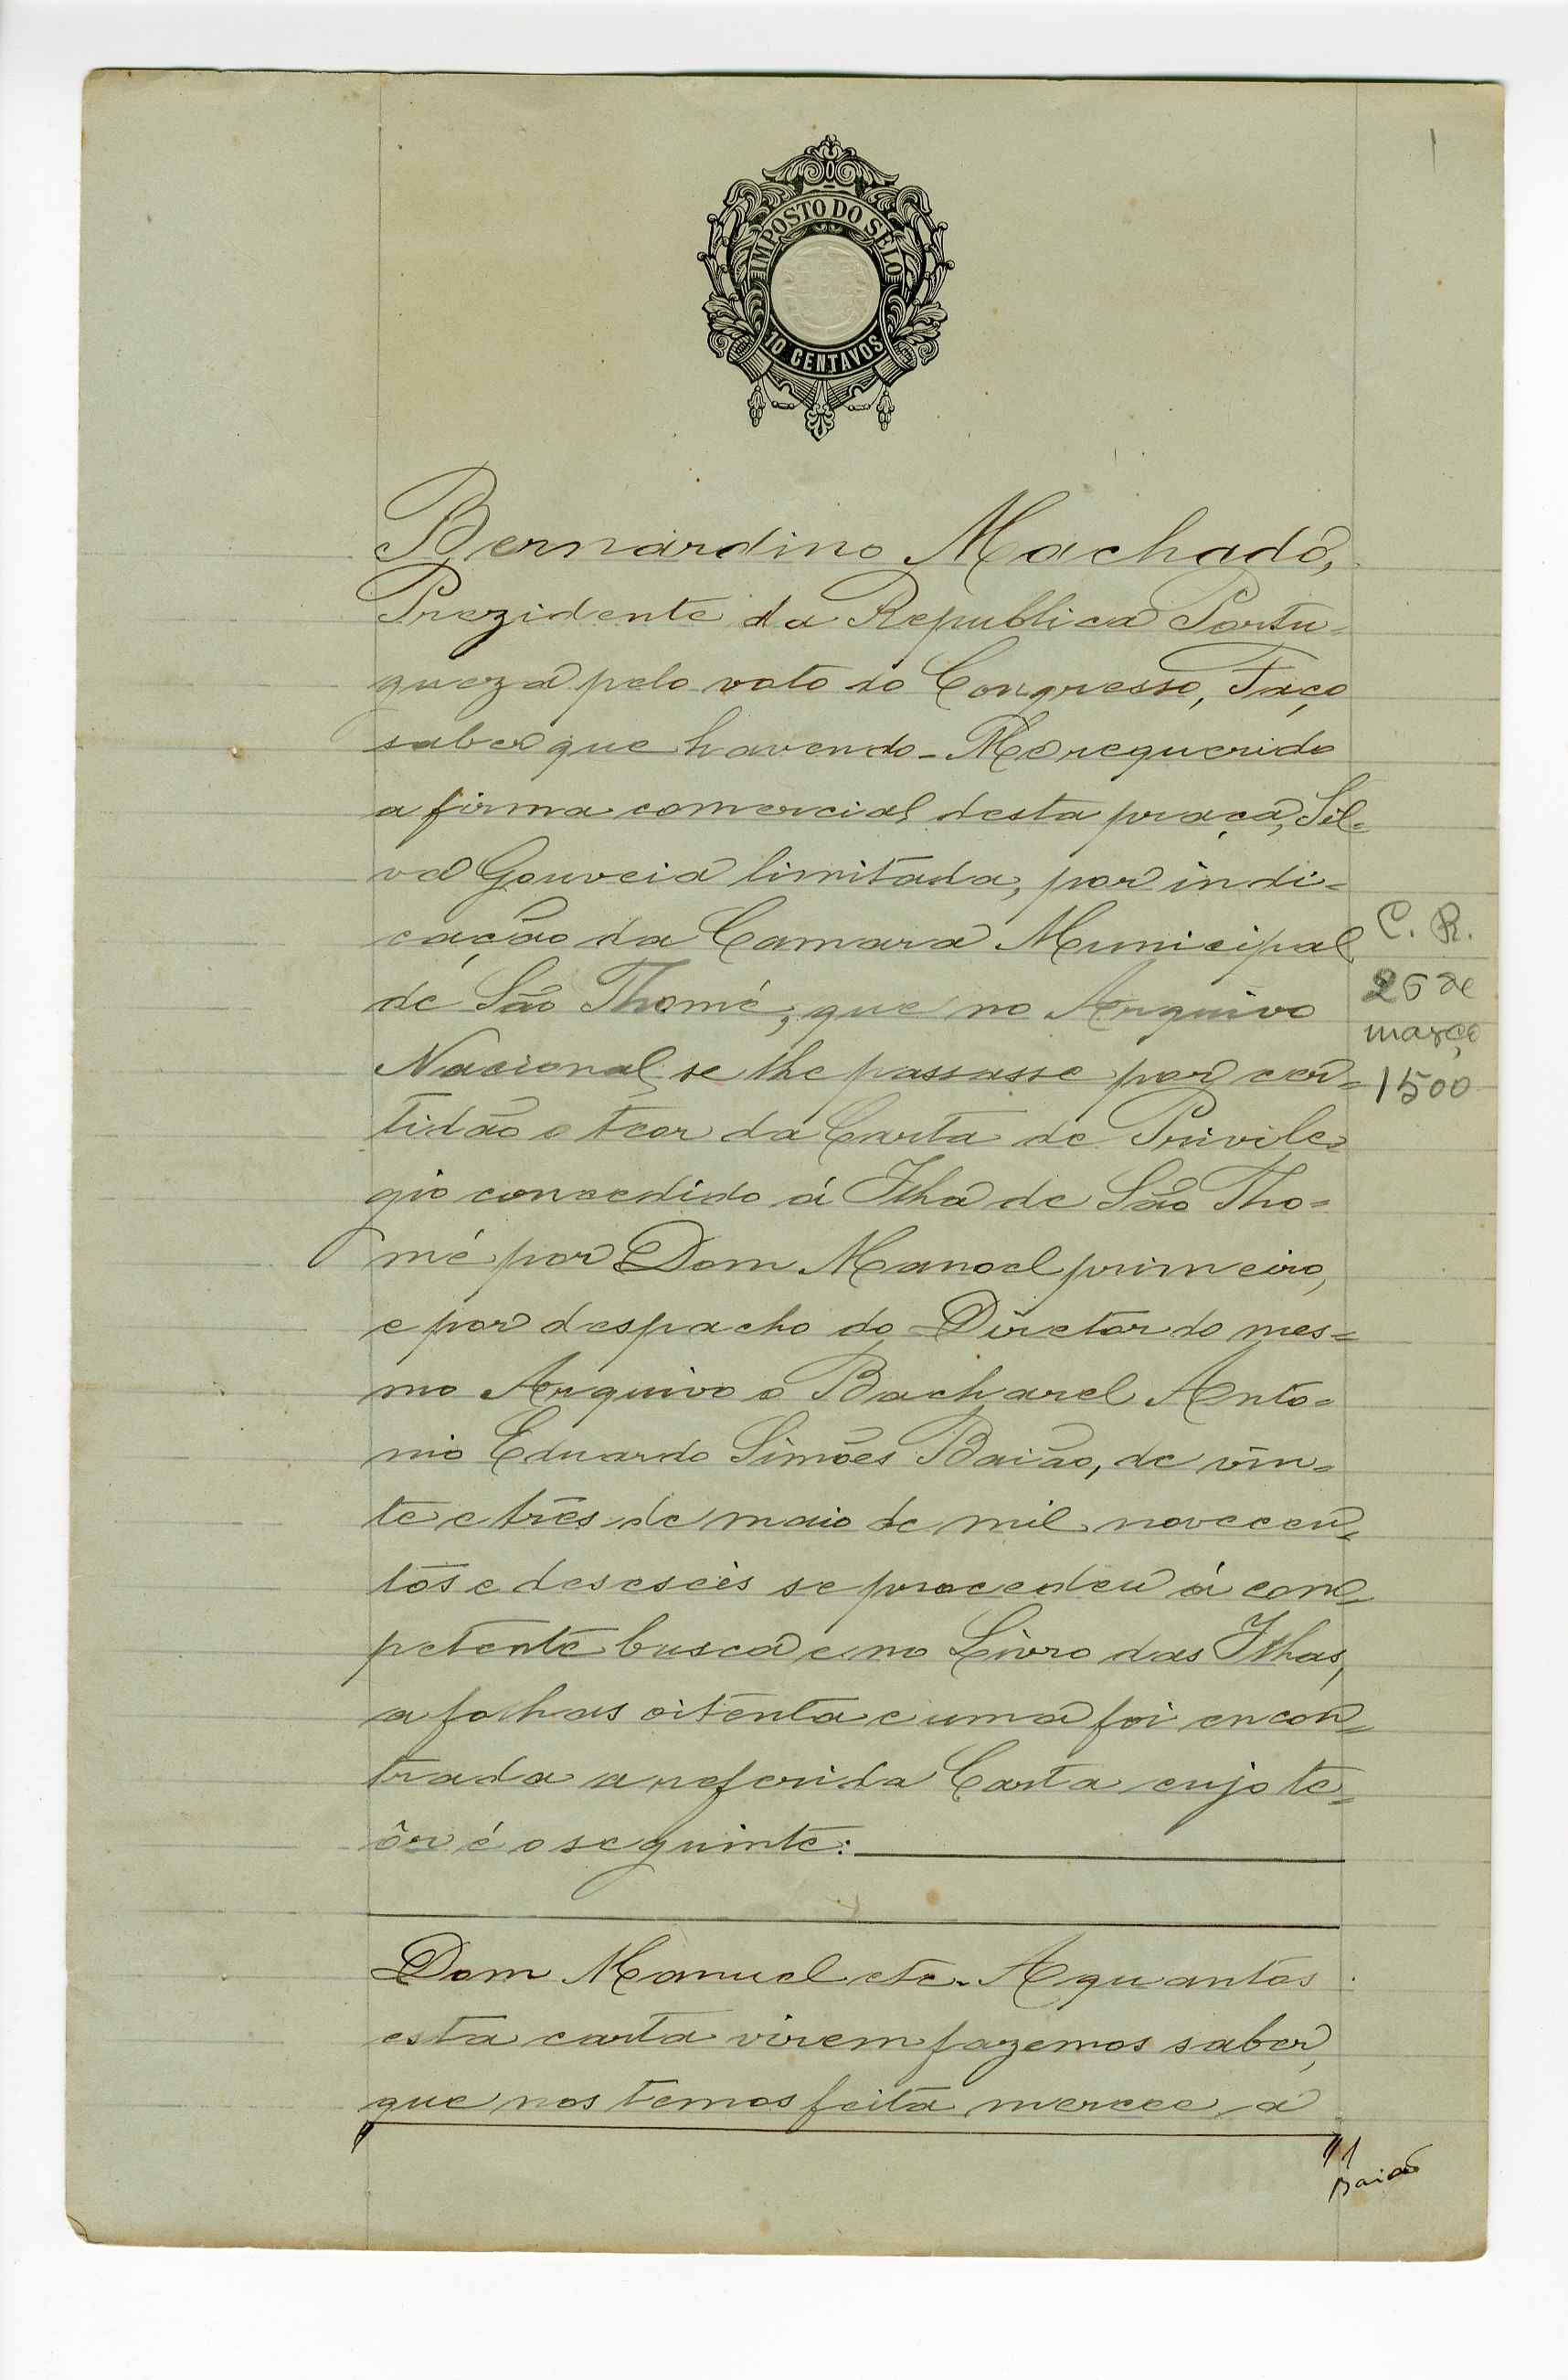 1
IMPOSTO DO SELO
10 CENTAVOS
Bernardino Machado,
Prezidente da Republica Portu-
gueza pelo voto do Congresso, Faço
saber que havendo-Me requerido
a firma comercial desta praça, Sil-
va Gouveia limitada, por indi-
cação da Camara Municipal
de São Thomé, que no Arquivo
Nacional se lhe passasse por cer-
tidão o teor da Carta de Privile-
gio concedido á Ilha de São Tho-
mé por Dom Manoel primeiro,
e por despacho do Diretor do mes-
mo Arquivo o Bacharel Anto-
nio Eduardo Simões Baião, de vin-
te e três de maio de mil novecen-
tos e deseseis se procedeu á com-
petente busca e no Livro das Ilhas,
a folhas oitenta e uma foi encon-
trada a referida Carta cujo te-
ôr é o seguinte:
C. R.
26 de
março
1500
Dom Manuel etc. A quantos
esta carta virem fazemos saber,
que nos temos feita mercee a
Baião